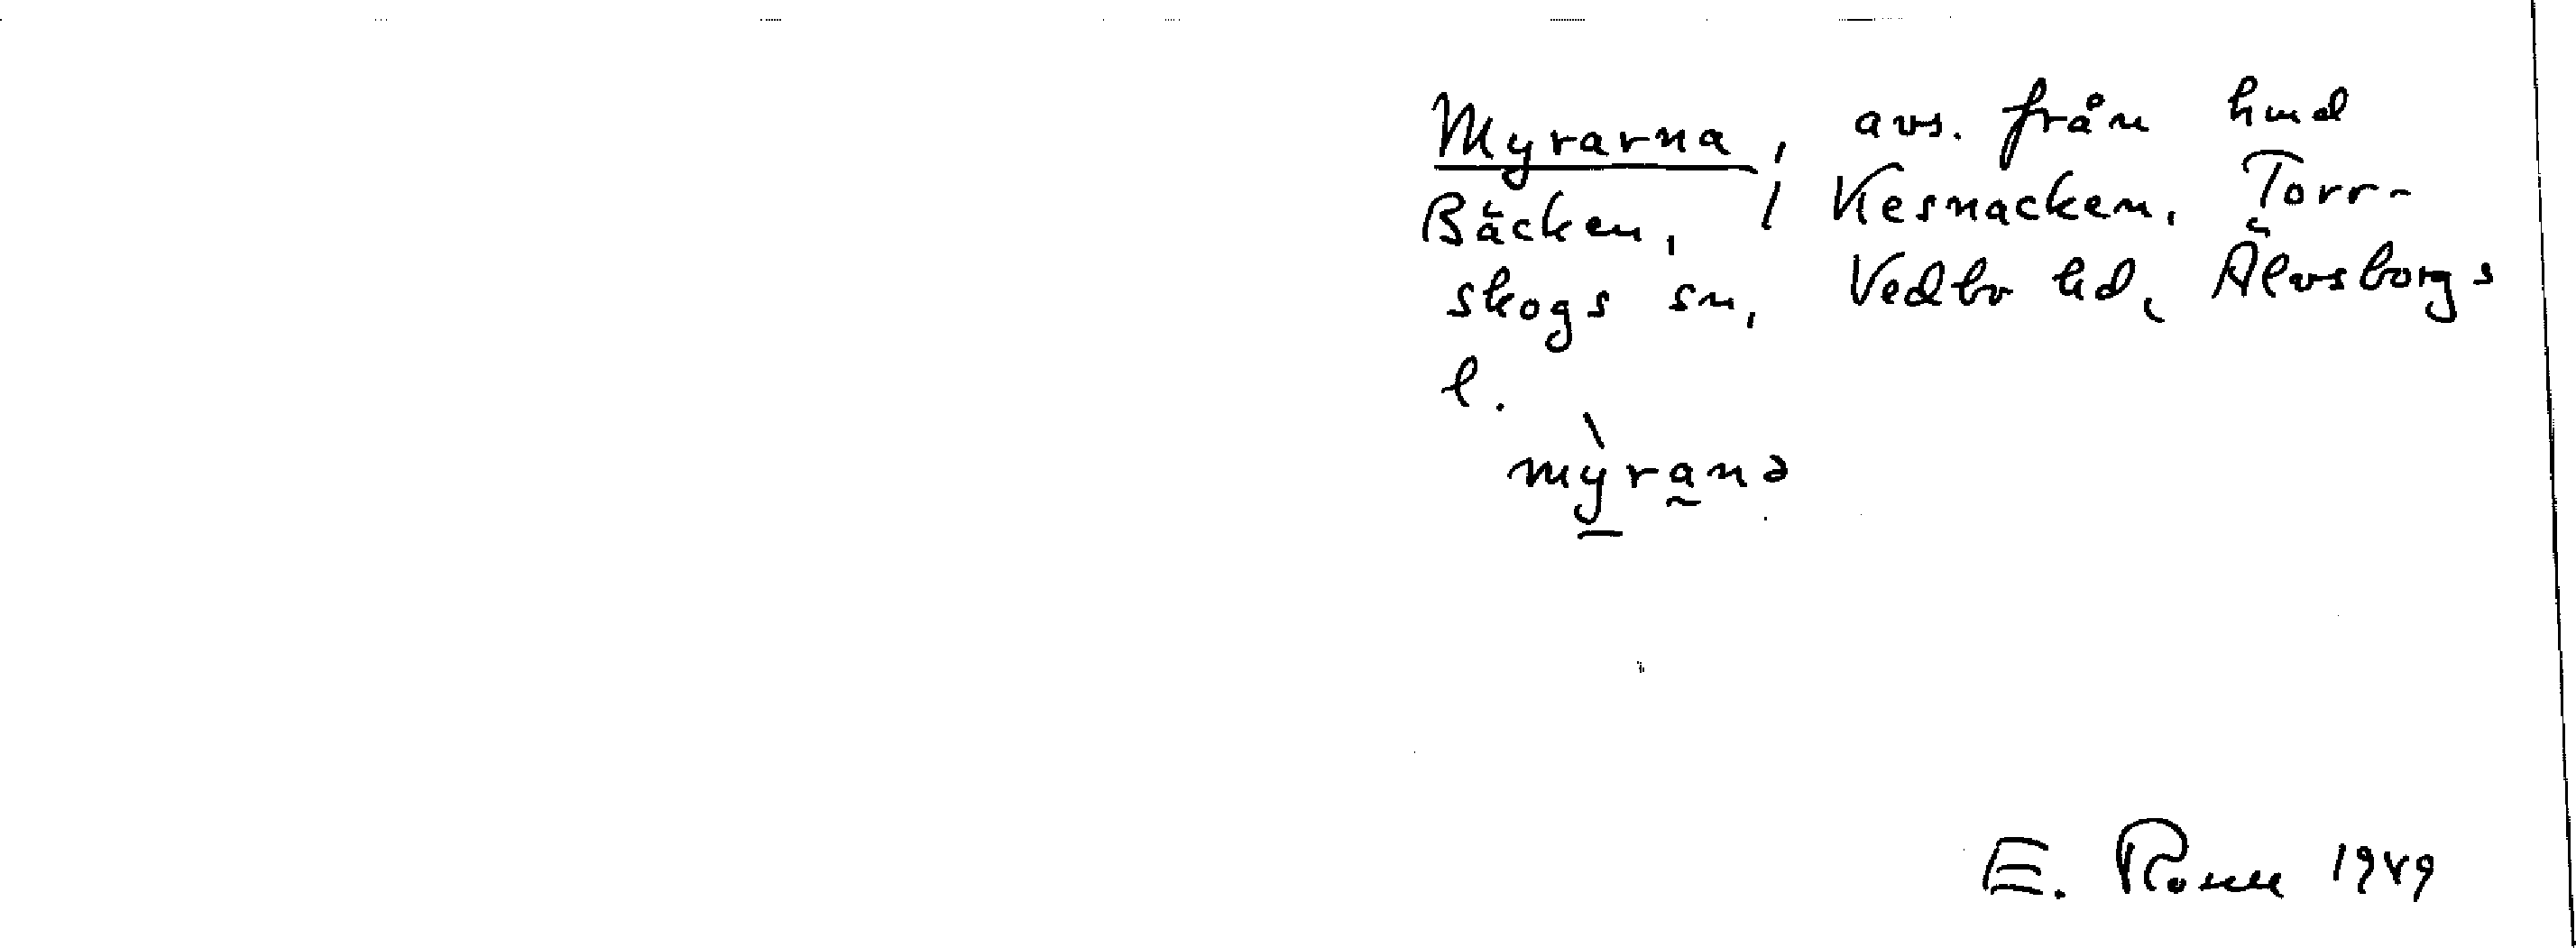 Myrarna, avs. från hmd
Bäcken, / Kesnacken, Torr-
skogs sn, Vedbo hd, Älvsborgs
l.
mỳranə
E. Rosell 1949